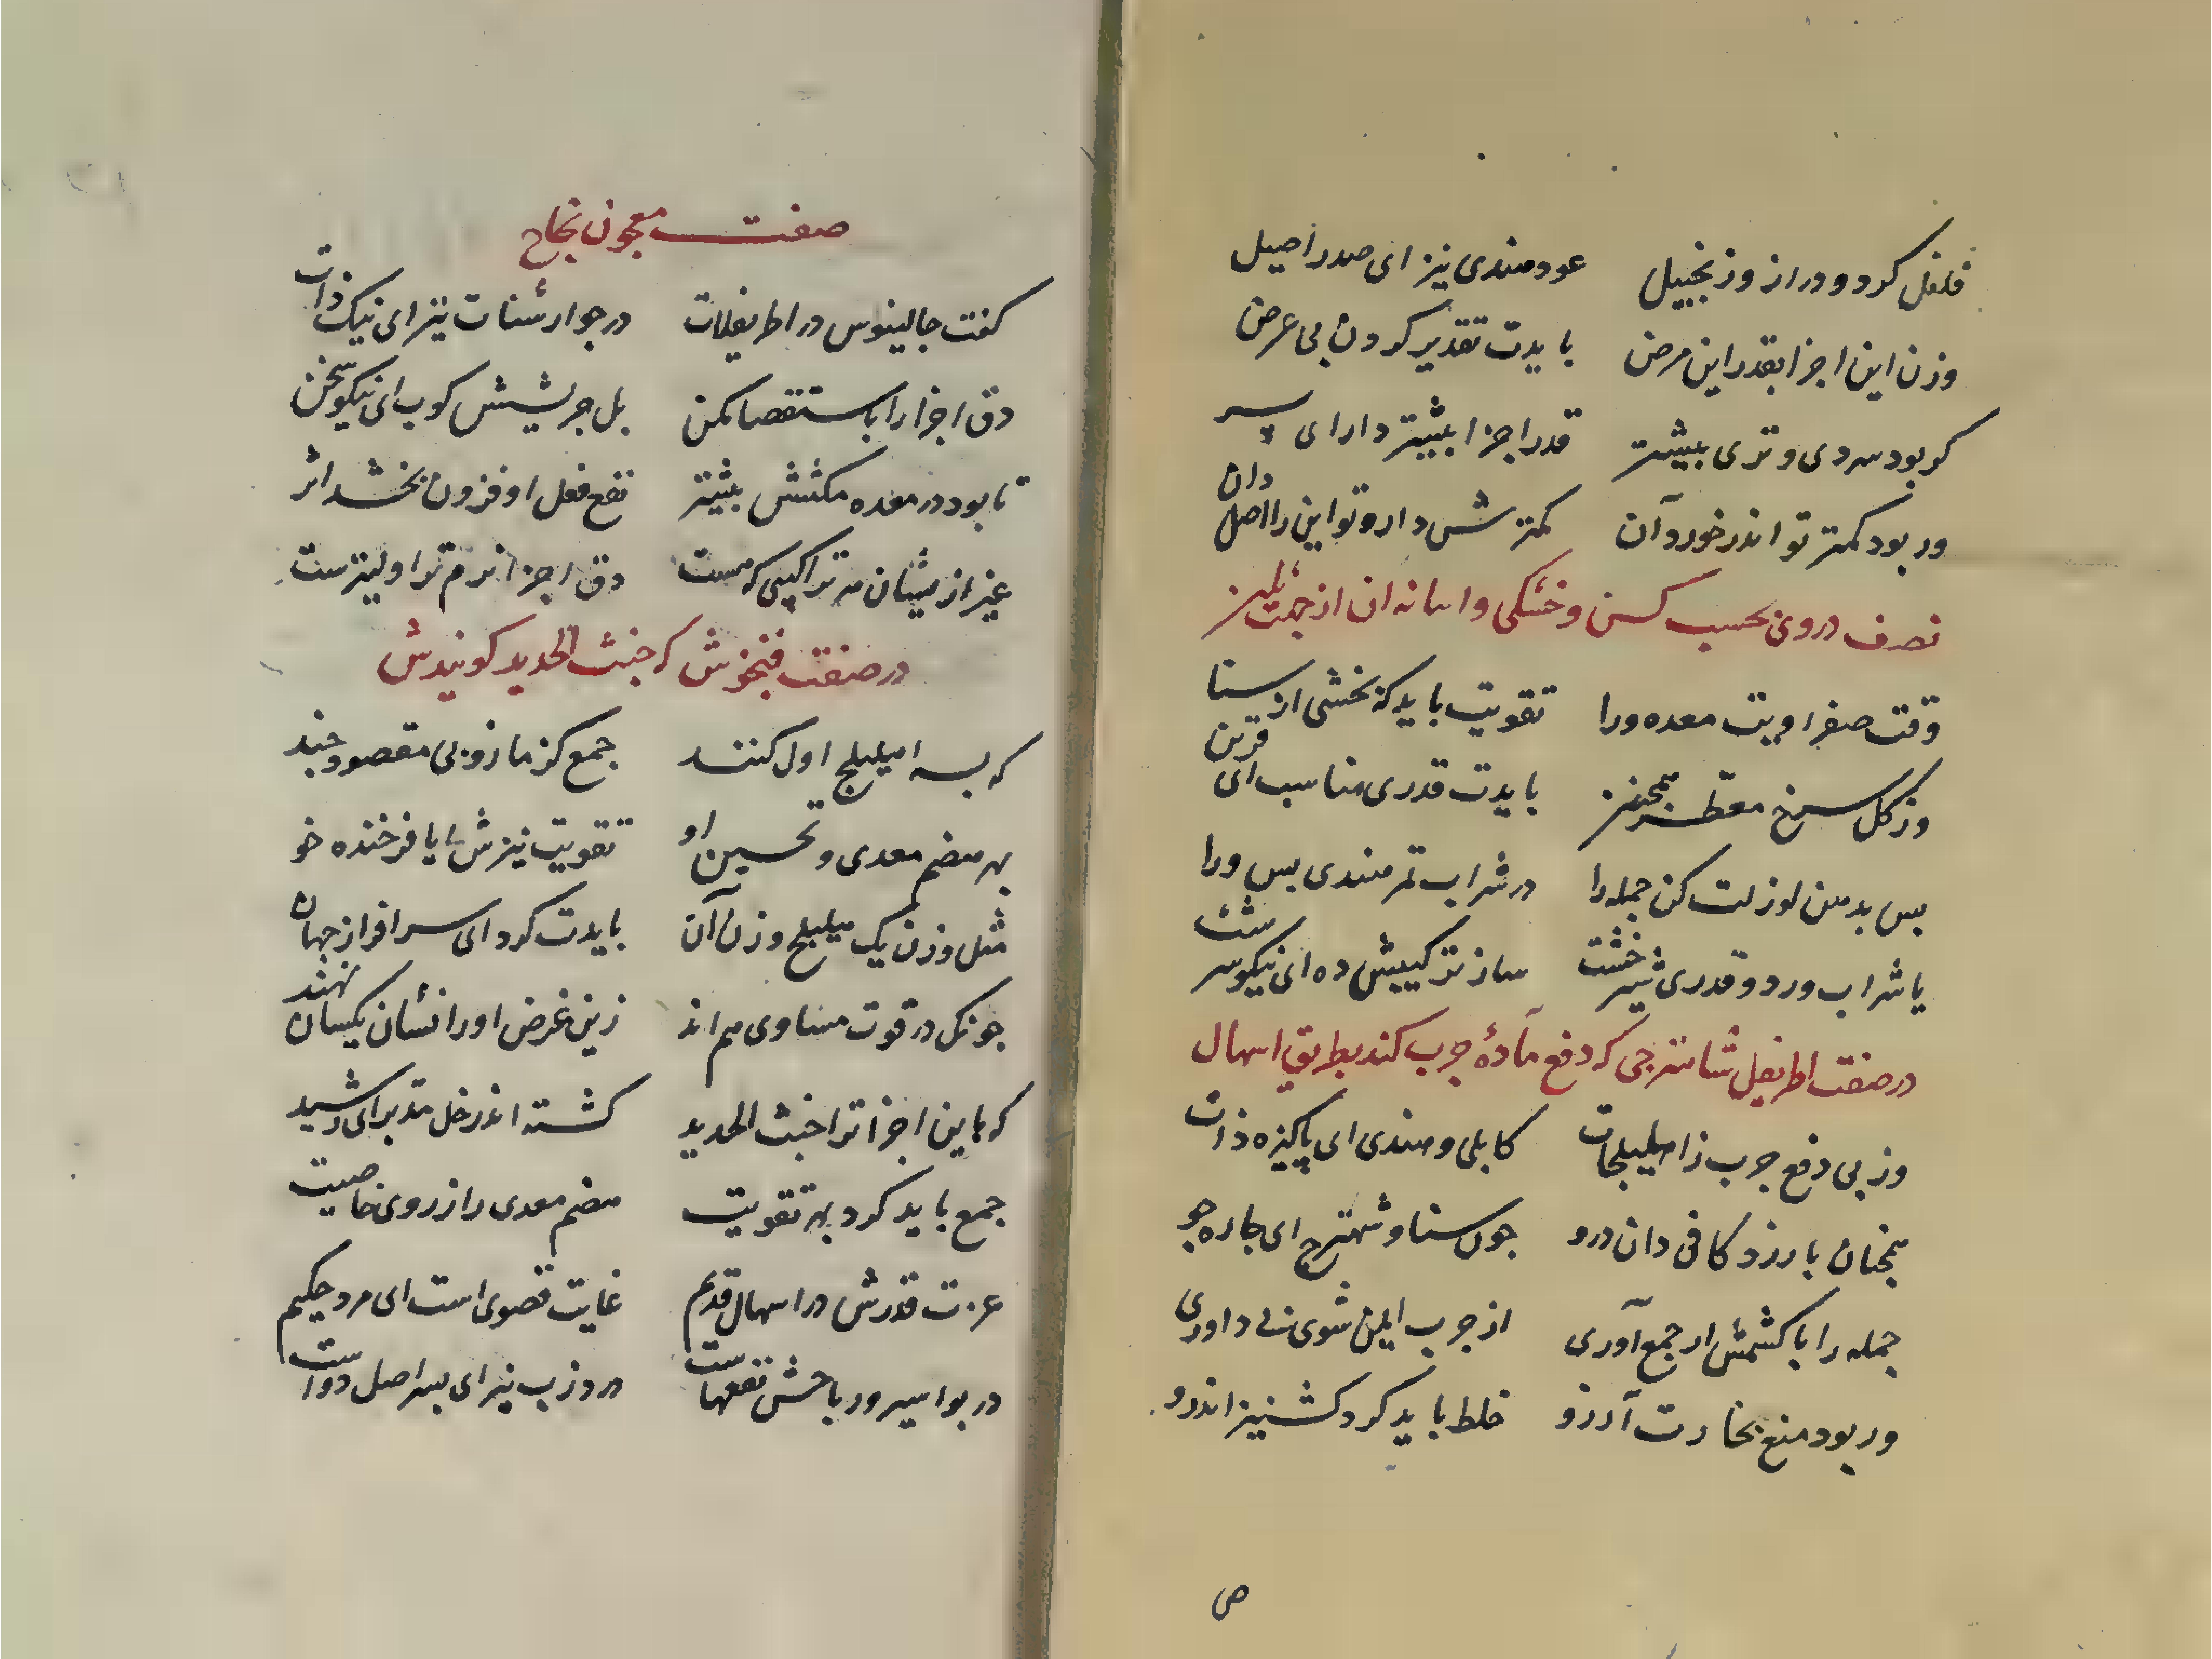 فلفل کرد و دراز و زنجبیل عود هندی نیز ای صدر اصیل
وزن این اجزا بقدر این مرض بایدت تقدیر کردن بی عرض
کر بود سردی و تری بیشتر قدر اجزا بیشتر دار ای پسر
ور بود کمتر تو اندر خورد آن کمترش دار و تو این را اصل دان
تصرف در وی بحسب کسن و خشکی و اسانه ان از جهت
وقت صفراویت معده ورا تقویت باید که بخشی از سنا
وز کل سرخ معطر همچنین بایدت قدری مناسب ای قرین
پس بدهن لوز لت کن جمله را در شراب تمر هندی بس ورا
یا شراب ورد و قدری شیرخشت ساز ترکیبش ده ای نیکو سرشت
در صفت اطریفل شاهترجی که دفع مادهٔ جرب کند بطریق اسهال
وز پی دفع جرب ز اهلیلجات کابلی و هندی ای پاکیزه ذات
همچنان بارزد کافی دان درو جون سنا و شهترج ای جاره جو
جمله را با کشمش ار جمع آوری از جرب ایمن شوی بی داوری
ور بود منع بخارت آرزو خلط باید کرد کشنیز اندرو
ص
صفت معجون نجاح
کفت جالینوس در اطریفلات در جوارشنات نیز ای نیک ذات
دق اجزا را باستقصا مکن بل جریشش کوب ای نیکو سخن
تا بود در معده مکثش بیشتر نفع فعل او فزون بخشد اثر
غیر ازیشان هر تراکیبی که هست دق اجزا نرم تر اولیترست
در صفت فنجنوش که خبث الحدید کویندش
که بسه اهلیلج اول کنند جمع کزمازو بی مقصود جند
بهر هضم معدی و تحسین او تقویت نیزش ایا فرخنده خو
مثل وزن یک هلیلج وزن آن بایدت کرد ای سرافراز جهان
جونک در قوت مساوی هم اند زین غرض اوزانشان یکسان نهند
که باین اجزا ترا خبث الحدید کشته اندر خل مدبر ای رشید
جمع باید کرد بهر تقویت هضم معدی را ز روی خاصیت
عزت قدرش در اسهال قدیم غایت قصوی است ای مرد حکیم
در بواسیر و ریاحش نفعهاست در ذرب نیز ای پسر اصل دواست